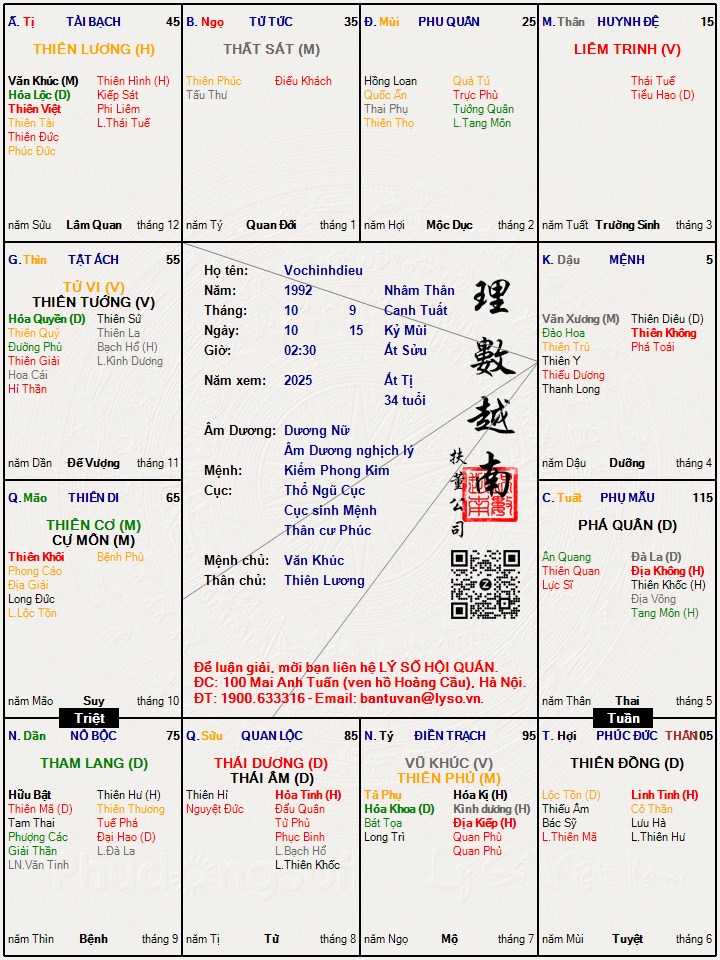 Ã. Tị TÀI BẠCH 45
THIÊN LƯƠNG (H)
Văn Khúc (M) Thiên Hình (H)
Hóa Lộc (D) Kiếp Sát
Thiên Việt Phi Liêm
Thiên Tài L.Thái Tuế
Thiên Đức
Phúc Đức
năm Sửu Lâm Quan tháng 12
B. Ngọ TỬ TỨC 35
THẤT SÁT (M)
Thiên Phúc Điếu Khách
Tấu Thư
năm Tý Quan Đới tháng 1
Đ. Mùi PHU QUÂN 25
Hồng Loan Quả Tú
Quốc Ấn Trực Phù
Thai Phụ Tướng Quân
Thiên Thọ L.Tang Môn
năm Hợi Mộc Dục tháng 2
M. Thân HUYNH ĐỆ 15
LIÊM TRINH (V)
Thái Tuế
Tiểu Hao (D)
năm Tuất Trường Sinh tháng 3
G. Thìn TẬT ÁCH 55
TỬ VI (V)
THIÊN TƯỚNG (V)
Hóa Quyền (D) Thiên Sứ
Thiên Quý Thiên La
Đường Phù Bạch Hổ (H)
Thiên Giải L.Kình Dương
Hoa Cái
Hỉ Thần
năm Dần Đế Vượng tháng 11
Họ tên: Vochinhdieu
Năm: 1992 Nhâm Thân
Tháng: 10 9 Canh Tuất
Ngày: 10 15 Kỷ Mùi
Giờ: 02:30 Ất Sửu
Năm xem: 2025 Ất Tị
34 tuổi
Âm Dương: Dương Nữ
Âm Dương nghịch lý
Mệnh: Kiếm Phong Kim
Cục: Thổ Ngũ Cục
Cục sinh Mệnh
Thân cư Phúc
Mệnh chủ: Văn Khúc
Thân chủ: Thiên Lương
理數越南
扶董公司
Để luận giải, mời bạn liên hệ LÝ SỐ HỘI QUÁN.
ĐC: 100 Mai Anh Tuấn (ven hồ Hoàng Cầu), Hà Nội.
ĐT: 1900.633316 - Email: bantuvan@lyso.vn.
K. Dậu MỆNH 5
Văn Xương (M) Thiên Diêu (D)
Đào Hoa Thiên Không
Thiên Trù Phá Toái
Thiên Y
Thiếu Dương
Thanh Long
năm Dậu Dưỡng tháng 4
Q. Mão THIÊN DI 65
THIÊN CƠ (M)
CỰ MÔN (M)
Thiên Khôi Bệnh Phù
Phong Cáo
Địa Giải
Long Đức
L.Lộc Tồn
năm Mão Suy tháng 10
C. Tuất PHỤ MẪU 115
PHÁ QUÂN (D)
Ân Quang Đà La (D)
Thiên Quan Địa Không (H)
Lực Sĩ Thiên Khốc (H)
Địa Võng
Tang Môn (H)
năm Thân Thai tháng 5
Triệt
Tuần
N. Dần NÔ BỘC 75
THAM LANG (D)
Hữu Bật Thiên Hư (H)
Thiên Mã (D) Thiên Thương
Tam Thai Tuế Phá
Phượng Các Đại Hao (D)
Giải Thần L.Đà La
LN.Văn Tinh
năm Thìn Bệnh tháng 9
Q. Sửu QUAN LỘC 85
THÁI DƯƠNG (D)
THÁI ÂM (D)
Thiên Hỉ Hỏa Tinh (H)
Nguyệt Đức Đẩu Quân
Tử Phù
Phục Binh
L.Bạch Hổ
L.Thiên Khốc
năm Tị Tử tháng 8
N. Tý ĐIỀN TRẠCH 95
VŨ KHÚC (V)
THIÊN PHỦ (M)
Tả Phụ Hóa Kị (H)
Hóa Khoa (D) Kình dương (H)
Bát Tọa Địa Kiếp (H)
Long Trì Quan Phù
Quan Phủ
năm Ngọ Mộ tháng 7
T. Hợi PHÚC ĐỨC THÂN 105
THIÊN ĐỒNG (D)
Lộc Tồn (D) Linh Tinh (H)
Thiếu Âm Cô Thần
Bác Sỹ Lưu Hà
L.Thiên Mã L.Thiên Hư
năm Mùi Tuyệt tháng 6